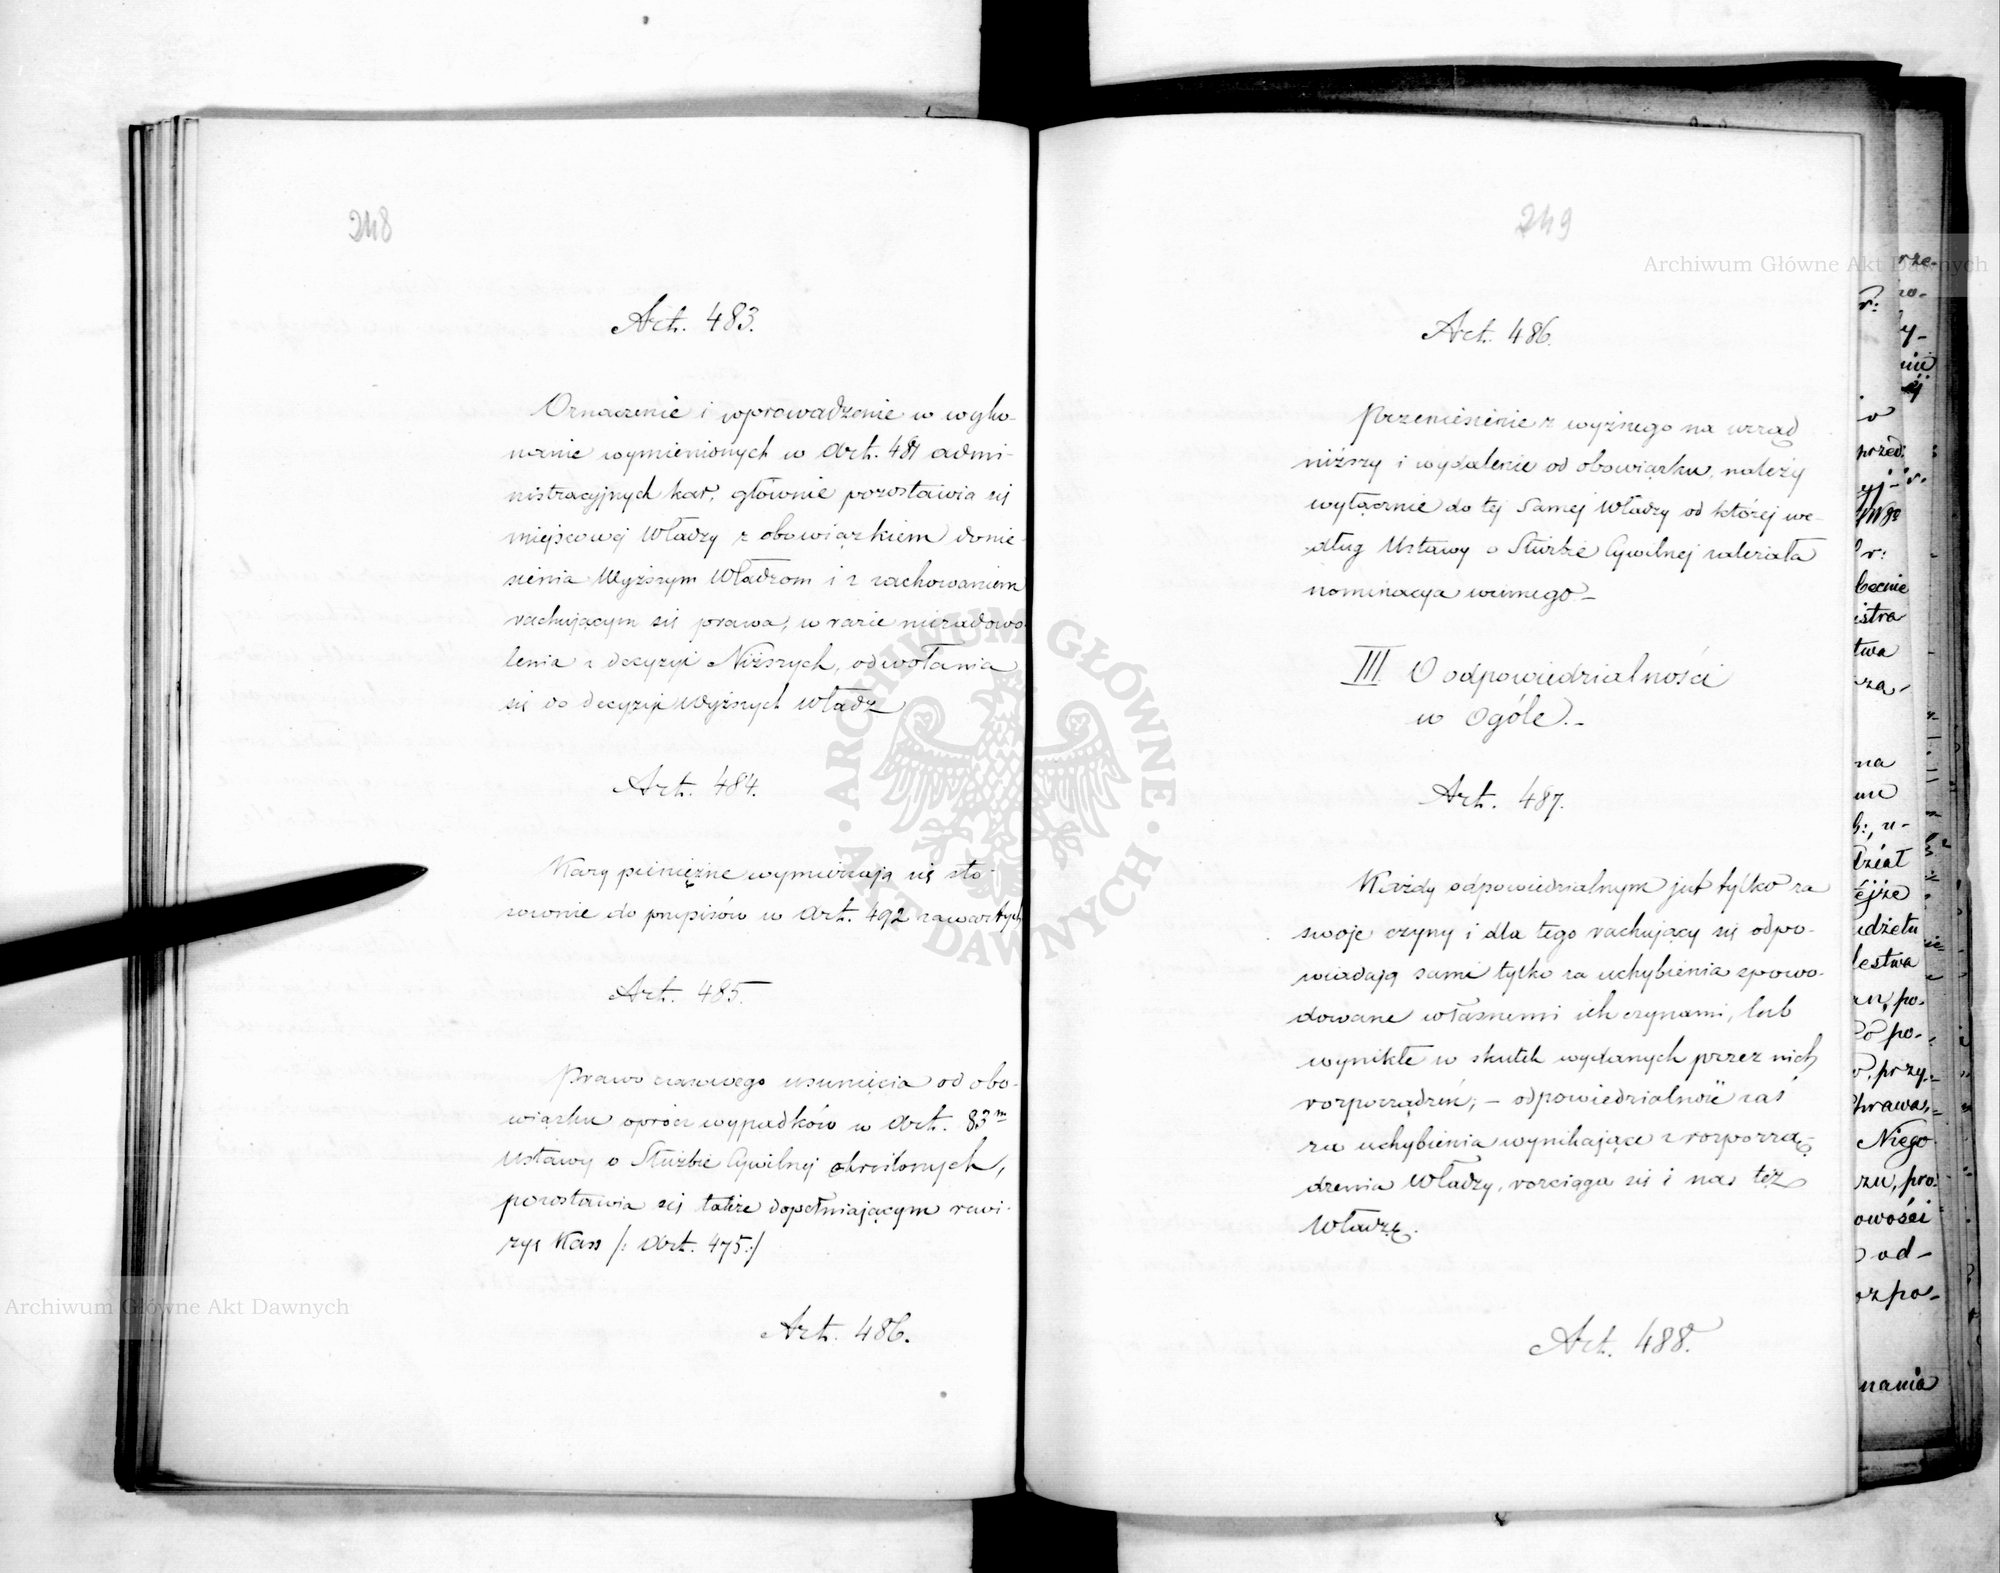 248
Art. 483.
Oznaczenie i wprowadzenie w wyko-
nanie wymienionych w Art. 481 admi-
nistracyjnych kar, głównie pozostawia się
miejscowej Władzy z obowiązkiem donie-
sienia Wyższym Władzom i z zachowaniem
rachującym się prawa, w razie niezadowo-
lenia z decyzyi Niższych, odwołania
się do decyzyi Wyższych Władz
Art. 484.
Kary pieniężne wymierzają się sto-
sownie do przepisów w Art. 492 zawartych
Art. 485.
Prawo czasowego usunięcia od obo-
wiązku oprócz wypadków w Art. 83m
Ustawy o Służbie Cywilnej określonych,
pozostawia się także dopełniającym rewi-
zyę Kass /: Art. 475:/
Art. 486.
249
Art. 486.
Przeniesienie z wyższego na urząd
niższy i wydalenie od obowiązku, należy
wyłącznie do tej Samej Władzy od której we-
dług Ustawy o Służbie Cywilnej zależała
nominacya winnego –
III O odpowiedzialności
w Ogóle. –
Art. 487.
Każdy odpowiedzialnym jest tylko za
swoje czyny i dla tego rachujący się odpo-
wiadają sami tylko za uchybienia spowo-
dowane własnemi ich czynami, lub
wynikłe w skutek wydanych przez nich
rozporządzeń; – odpowiedzialność zaś
za uchybienia wynikające z rozporzą-
dzenia Władzy, rozciąga się i na też
Władzę.
Art. 488.
Archiwum Główne Akt Dawnych
Archiwum Główne Akt Dawnych
ARCHIWUM GŁÓWNE AKT DAWNYCH